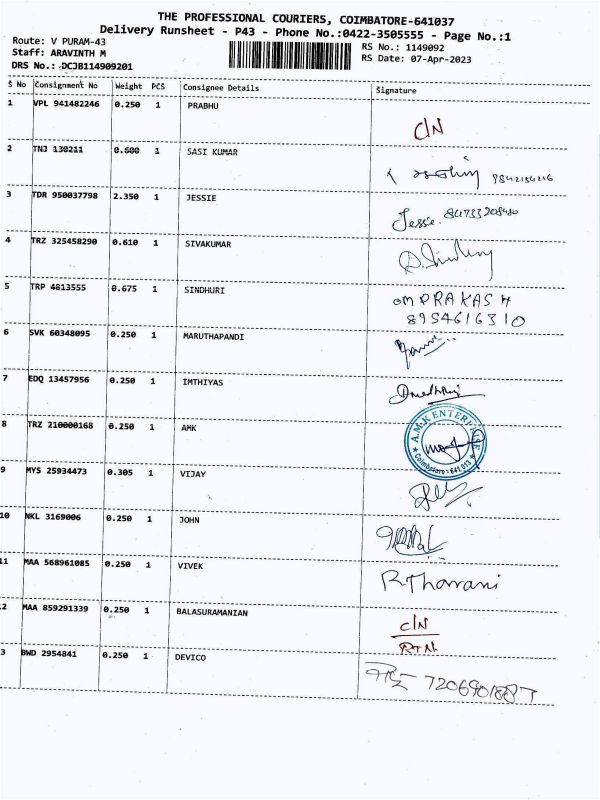 THE PROFESSIONAL COURIERS, COIMBATORE-641037
Delivery Runsheet - P43 - Phone No.:0422-3505555 - Page No.:1
Route: V PURAM-43
RS No.: 1149092
Staff: ARAVINTH M
RS Date: 07-Apr-2023
DRS No.: DCJB114909201
S No Consignment No Weight PCS Consignee Details Signature
1 VPL 941482246 0.250 1 PRABHU
C/N
2 TNJ 130211 0.600 1 SASI KUMAR
3 TDR 950037798 2.350 1 JESSIE
Jessie.
4 TRZ 325458290 0.610 1 SIVAKUMAR
5 TRP 4813555 0.675 1 SINDHURI
OM PRAKASH
8954616310
6 SVK 60348095 0.250 1 MARUTHAPANDI
7 EDQ 13457956 0.250 1 IMTHIYAS
8 TRZ 210000168 0.250 1 AMK
A.M.K ENTERPRISE
Coimbatore - 641 013
9 MYS 25934473 0.305 1 VIJAY
10 NKL 3169006 0.250 1 JOHN
11 MAA 568961085 0.250 1 VIVEK
R Tharani
2 MAA 859291339 0.250 1 BALASURAMANIAN
C/N
RTN
3 BWD 2954841 0.250 1 DEVICO